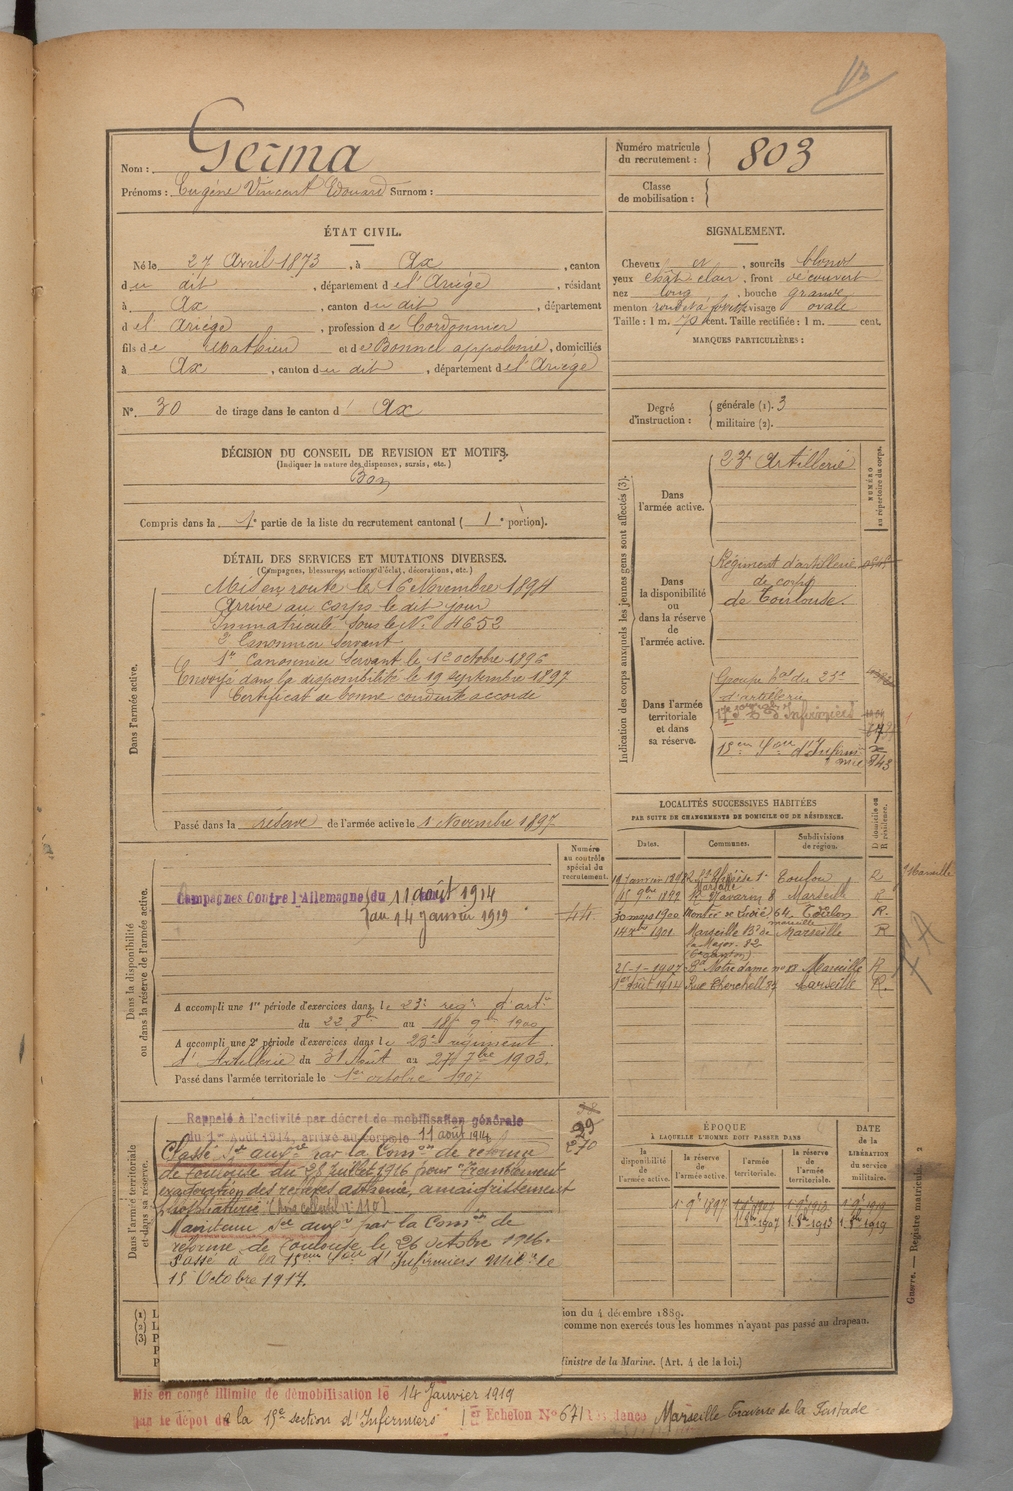 Nom : Germa
Prénoms : Eugène Vincent Edouard Surnom :
Numéro matricule du recrutement : 803
Classe de mobilisation :
ÉTAT CIVIL.
Né le 27 Avril 1873, à Ax, canton
du dit, département de l'Ariège, résidant
à Ax, canton du dit, département
d el' Ariège, profession de Cordonnier
fils de Mathieu et de Bonnel appolonie, domiciliés
à Ax, canton du dit, département de l'Ariège
N° 30 de tirage dans le canton d' Ax
SIGNALEMENT.
Cheveux et, sourcils blond
yeux chât clair, front découvert
nez long, bouche grande
menton rond visage ovale
Taille : 1 m. 70 cent. Taille rectifiée : 1 m. cent.
MARQUES PARTICULIÈRES :
Degré d'instruction : générale (1). 3
militaire (2).
DÉCISION DU CONSEIL DE REVISION ET MOTIFS.
(Indiquer la nature des dispenses, sursis, etc.)
Bon
Compris dans la 1e partie de la liste du recrutement cantonal (1e portion).
DÉTAIL DES SERVICES ET MUTATIONS DIVERSES.
(Campagnes, blessures, actions d'éclat, décorations, etc.)
Dans l'armée active.
Mis en route le 16 Novembre 1894
Arrivé au corps le dit jour
Immatriculé sous le N° 4652
2e Canonnier Servant
1er Canonnier Servant le 12 octobre 1896
Envoyé dans la disponibilité le 19 Septembre 1897
Certificat de bonne conduite accordé
Passé dans la réserve de l'armée active le 1 Novembre 1897
Indication des corps auxquels les jeunes gens sont affectés (3).
NUMÉRO au répertoire du corps.
Dans l'armée active.
23e Artillerie
Dans la disponibilité ou dans la réserve de l'armée active.
Régiment d'artillerie
de corps
de Toulouse.
Dans l'armée territoriale et dans sa réserve.
Groupe tal du 23e
d'artillerie
d'Infirmiers
15em don d'Infirmi
843
Dans la disponibilité ou dans la réserve de l'armée active.
Numéro au contrôle spécial du recrutement.
Campagnes Contre l'Allemagne du 11 août 1914
au 14 Janvier 1919
44
A accompli une 1re période d'exercices dans le 23e reg. d'art
du 22 8bre au 18 9bre 1900
A accompli une 2e période d'exercices dans le 23e régiment
d'Artillerie du 31 Août au 27 7bre 1903.
Passé dans l'armée territoriale le 1er octobre 1907
LOCALITÉS SUCCESSIVES HABITÉES
PAR SUITE DE CHANGEMENTS DE DOMICILE OU DE RÉSIDENCE.
Dates. Communes. Subdivisions de région. D domicile ou R résidence.
Toulon R
Marseille
15 9bre 1899 R. Navarin 8 Marseille R
30 mars 1900 64. Toulon R.
14 Xbre 1901 Marseille Bd de Marseille R
la Major. 82
(6e canton)
21-1-1907 Bd Notre dame Marseille R
1er Août 1914 Rue Cherchell Marseille R.
Dans l'armée territoriale et dans sa réserve.
Rappelé à l'activité par décret de mobilisation générale
du 1er Août 1914, arrivé au corps le 11 août 1914
Classé Sce auxre par la Comon de réforme
de Toulouse du 28 Juillet 1916 pour
exagération des réflexes asthénie, amaigrissement
(hors collectif n° 110)
Maintenu Sce auxre par la Comon de
réforme de Toulouse le 26 octobre 1916.
Passé à la 15eme Son d'Infirmiers Mili le
15 Octobre 1917.
ÉPOQUE
À LAQUELLE L'HOMME DOIT PASSER DANS
la disponibilité de l'armée active. la réserve de l'armée active. l'armée territoriale. la réserve de l'armée territoriale.
DATE de la LIBÉRATION du service militaire.
1 9e 1897
1 8bre 1907 1. 8bre 1913 1. 8bre 1919
Guerre. — Registre matricule. 2
(1) L
(2) L
(3) P
P
P
ion du 4 décembre 1889.
comme non exercés tous les hommes n'ayant pas passé au drapeau.
Ministre de la Marine. (Art. 4 de la loi.)
Mis en congé illimité de démobilisation le 14 Janvier 1919
par le dépôt de la 15e section d'Infirmiers 1er Echelon N° 671 Résidence Marseille Traverse de la